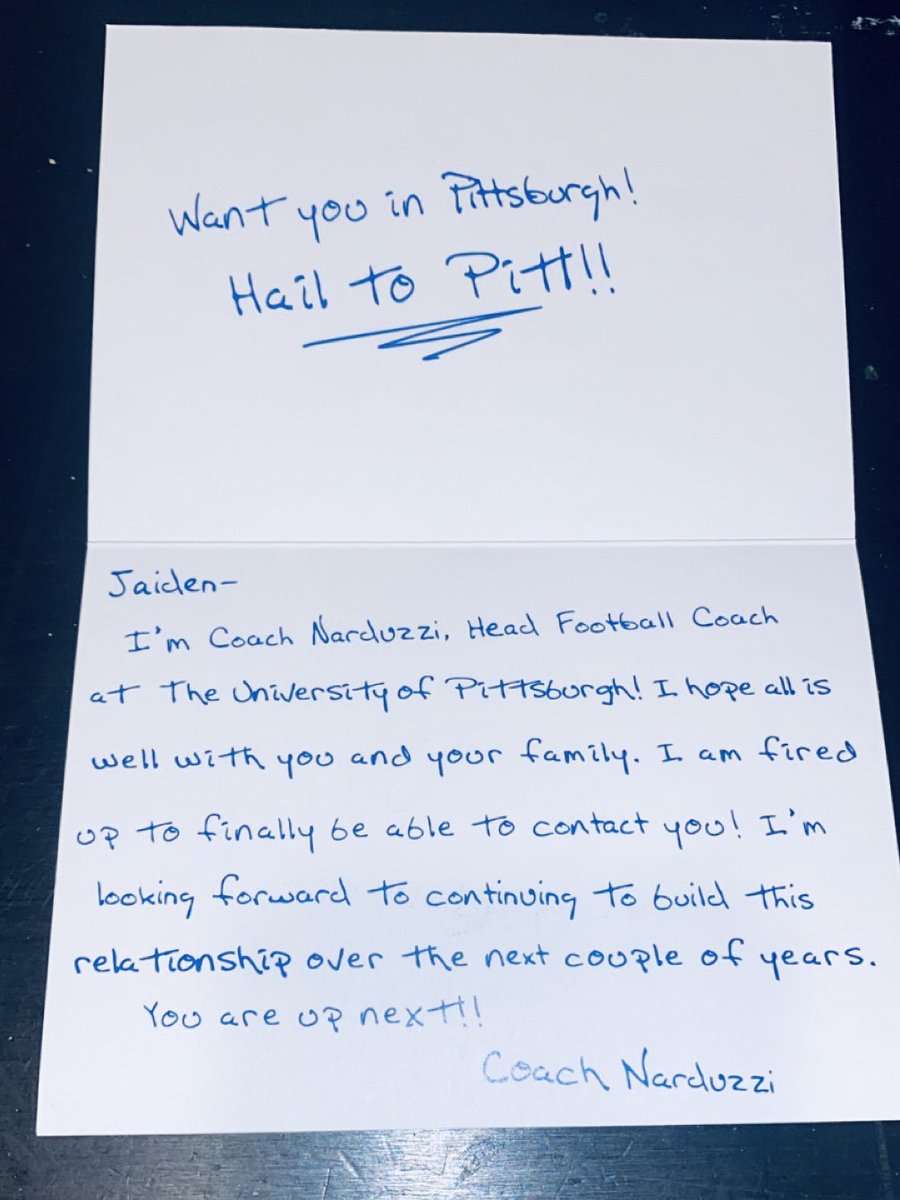 Want you in Pittsburgh!
Hail to Pitt!!
Jaiden-
I'm Coach Narduzzi, Head Football Coach
at the University of Pittsburgh! I hope all is
well with you and your family. I am fired
up to finally be able to contact you! I'm
looking forward to continuing to build this
relationship over the next couple of years.
You are up next!!
Coach Narduzzi